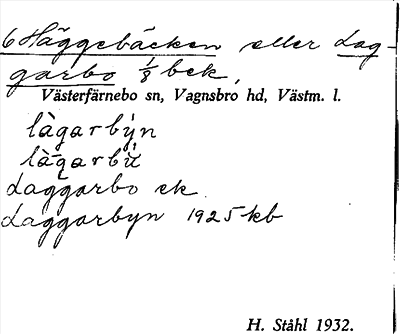 6 Häggebäcken eller Lag-
garbo 1/8 bek,
Västerfärnebo sn, Vagnsbro hd, Västm. l.
làgarbýn
Laggarbo ek
Laggarbyn 1925 kb
H. Ståhl 1932.